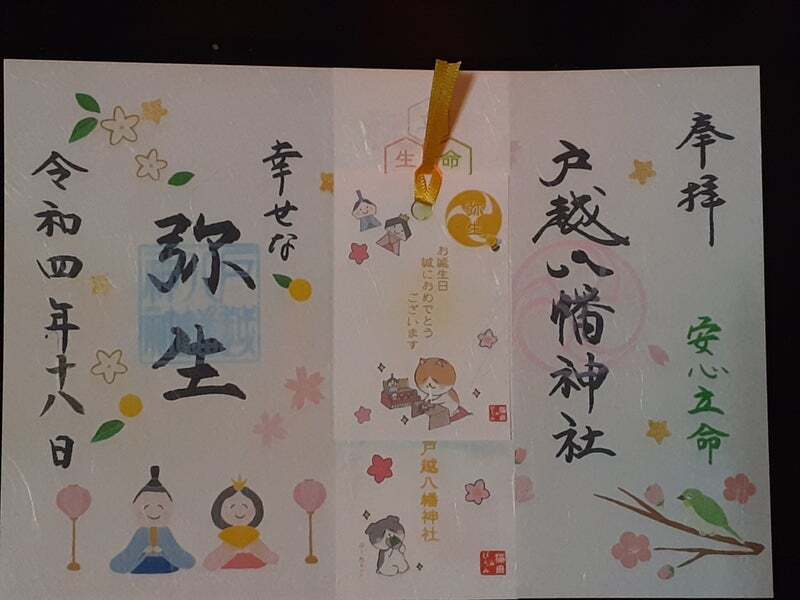 奉拝
安心立命
戸越八幡神社
生命
弥生
お誕生日
誠におめでとう
ございます
戸越八幡神社
幸せな
弥生
令和四年十八日